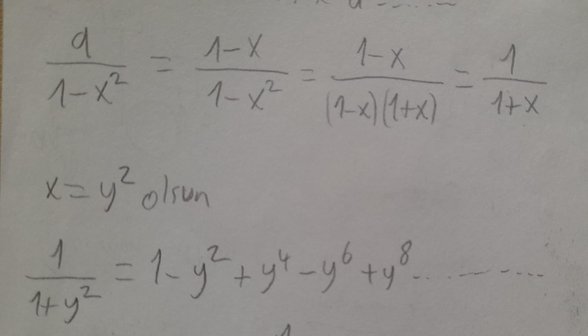 a/(1-x²) = (1-x)/(1-x²) = (1-x)/((1-x)(1+x)) = 1/(1+x)
x=y² olsun
1/(1+y²) = 1-y²+y⁴-y⁶+y⁸..........